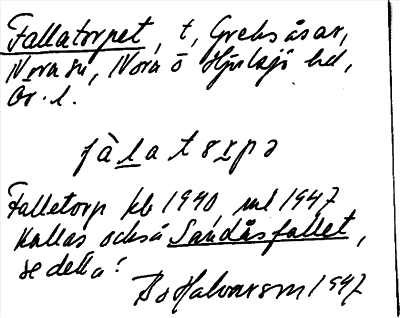 Fallatorpet, t, Greksåsar,
Nora sn, Nora o Hjulsjö hd,
Ör. l.
fàlatɷrpə
Falletorp kb 1940, ml 1947
Kallas också Sandåsfallet,
se detta!
Bo Halvarson 1947